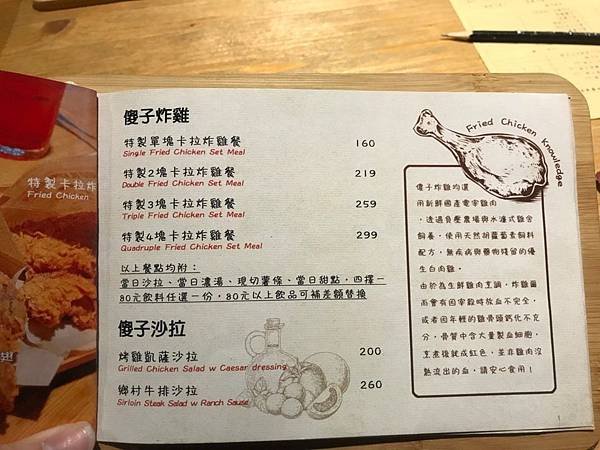 傻子炸雞
特製單塊卡拉炸雞餐 160
Single Fried Chicken Set Meal
特製2塊卡拉炸雞餐 219
Double Fried Chicken Set Meal
特製3塊卡拉炸雞餐 259
Triple Fried Chicken Set Meal
特製4塊卡拉炸雞餐 299
Quadruple Fried Chicken Set Meal
以上餐點均附：
當日沙拉、當日濃湯、現切薯條、當日甜點，四擇一
80元飲料任選一份，80元以上飲品可補差額替換
傻子沙拉
烤雞凱薩沙拉 200
Grilled Chicken Salad w Caesar dressing
鄉村牛排沙拉 260
Sirloin Steak Salad w Ranch Sause
Fried Chicken Knowledge
傻子炸雞均選
用新鮮國產電宰雞肉
，透過負壓農場與水濂式雞舍
飼養，使用天然胡蘿蔔素飼料
配方，無疾病與藥物殘留的優
生白肉雞。
由於為生鮮雞肉烹調，炸雞爾
而會有因宰殺時放血不完全，
或者因年輕的雞骨頭鈣化不充
分，骨質中含大量製血細胞，
烹煮後就成紅色，並非雞肉沒
熱流出的血，請安心食用！
1
特製卡拉炸
Fried Chicken
翅